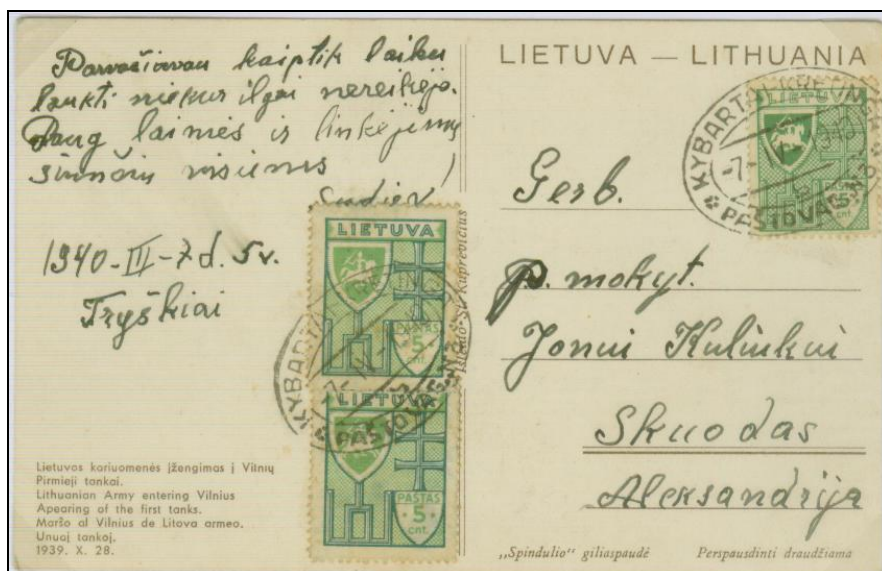 Parvažiavau kaiptik laiku
laukti niekur ilgai nereikėjo.
Daug laimės ir linkėjimų
siunčiu visiems
sudiev!
1940-III-7 d. 5 v.
Tryškiai
LIETUVA
PAŠTAS
5
cnt.
LIETUVA
PAŠTAS
5
cnt.
KYBARTAI
PAŠTOVAG
Išleido St. Kuprevičius
Lietuvos kariuomenės įžengimas į Vilnių
Pirmieji tankai.
Lithuanian Army entering Vilnius
Apearing of the first tanks.
Maršo al Vilnius de Litova armeo.
Unuaj tankoj.
1939. X. 28.
LIETUVA — LITHUANIA
LIETUVA
PAŠTAS
5
cnt.
KYBARTAI
PAŠTOVAG
Gerb.
p. mokyt.
Jonui Kuliukui
Skuodas
Aleksandrija
„Spindulio" giliaspaudė
Perspausdinti draudžiama